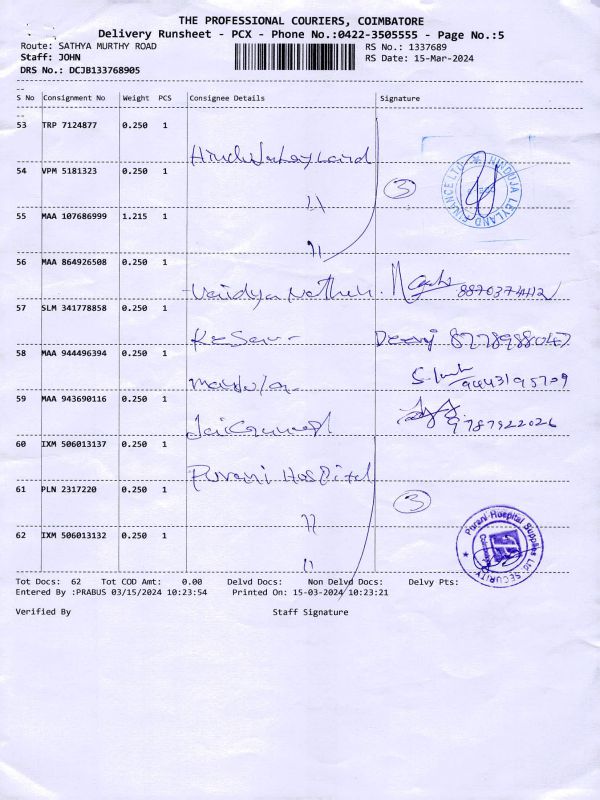 THE PROFESSIONAL COURIERS, COIMBATORE
Delivery Runsheet - PCX - Phone No.:0422-3505555 - Page No.:5
Route: SATHYA MURTHY ROAD RS No.: 1337689
Staff: JOHN RS Date: 15-Mar-2024
DRS No.: DCJB133768905
S No Consignment No Weight PCS Consignee Details Signature
53 TRP 7124877 0.250 1
Hinduja Leyland
54 VPM 5181323 0.250 1 3
HINDUJA LEYLAND FINANCE LTD
11
55 MAA 107686999 1.215 1
11
56 MAA 864926508 0.250 1
Vaidya Nathan 8870374112
57 SLM 341778858 0.250 1
Kesav 8778988047
58 MAA 944496394 0.250 1
9443195709
59 MAA 943690116 0.250 1
9787922026
60 IXM 506013137 0.250 1
Purani Hospital
61 PLN 2317220 0.250 1 3
11
Purani Hospital Supplies Ltd SECURITY
62 IXM 506013132 0.250 1
11
Tot Docs: 62 Tot COD Amt: 0.00 Delvd Docs: Non Delvd Docs: Delvy Pts:
Entered By :PRABUS 03/15/2024 10:23:54 Printed On: 15-03-2024 10:23:21
Verified By Staff Signature